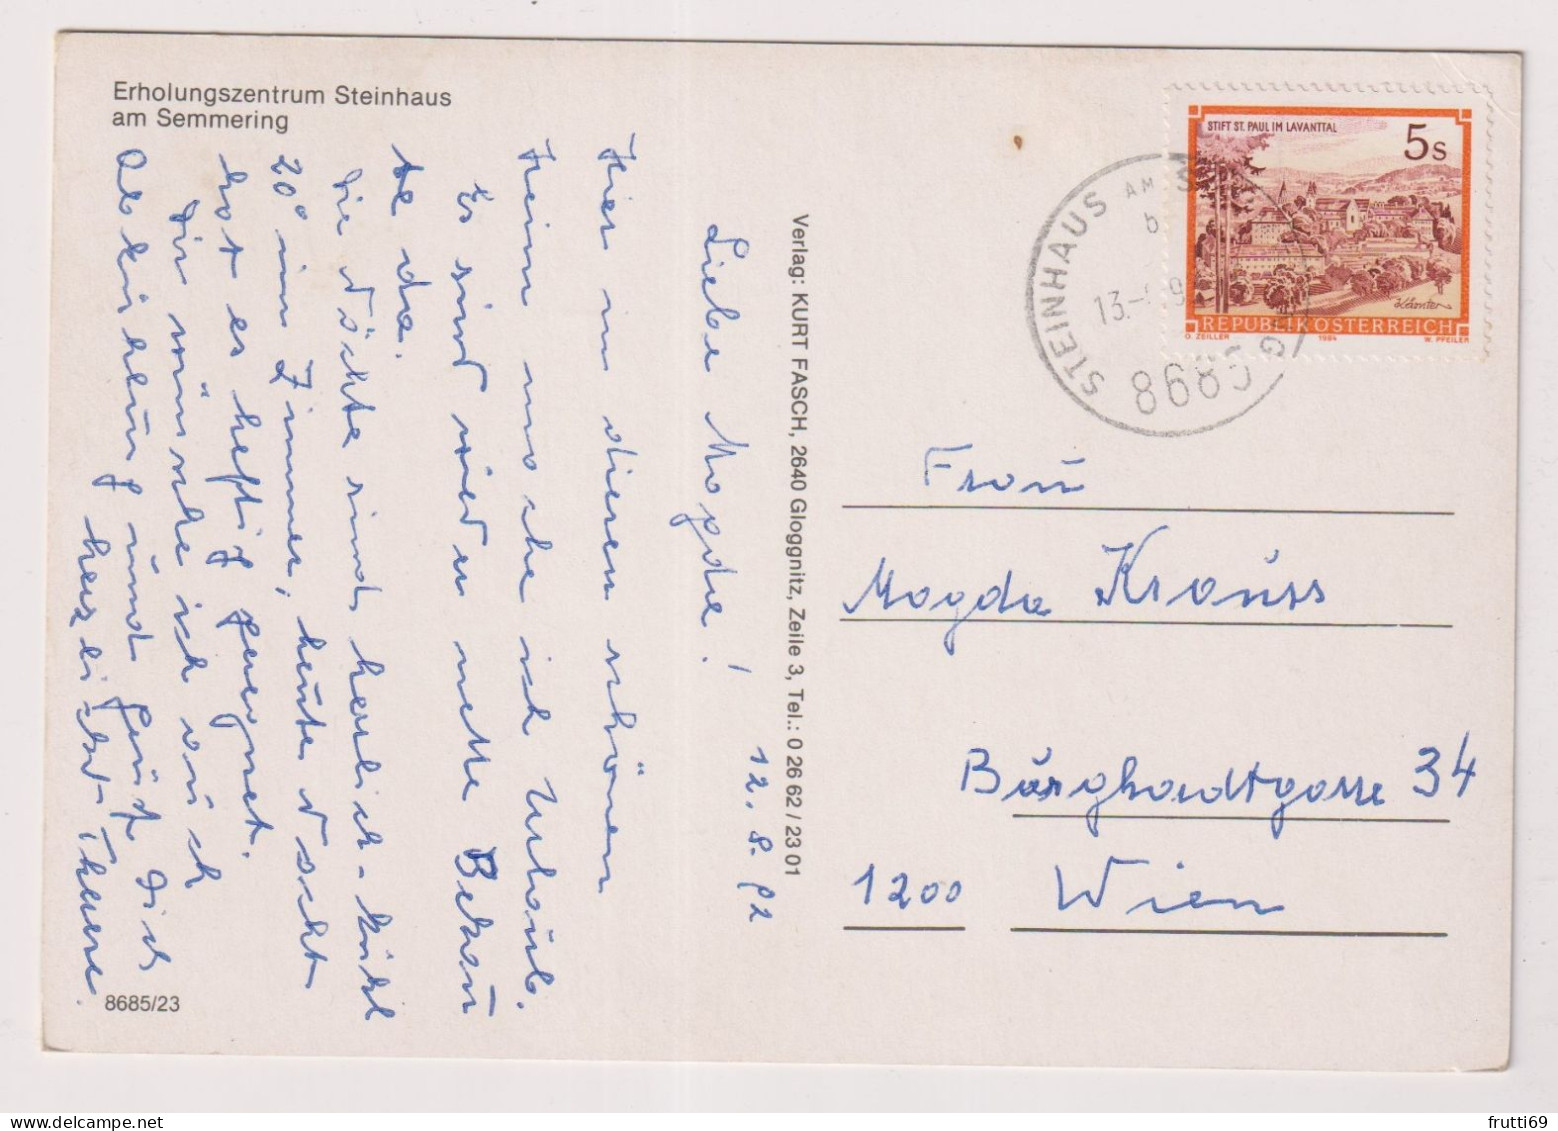 Erholungszentrum Steinhaus
am Semmering
12. 8. 92
Liebe Magda!
Hier in diesem schönen
Heim mache ich Urlaub.
Es sind wieder nette Bekann
te da.
Die Nächte sind herrlich-kühl
20° im Zimmer, heute Nacht
hat es heftig geregnet.
Dir wünsche ich auch
Abkühlung und grüße Dich
herzlichst Therese.
8685/23
Verlag: KURT FASCH, 2640 Gloggnitz, Zeile 3, Tel.: 0 26 62 / 23 01
STIFT ST. PAUL IM LAVANTTAL
5s
Kärnten
REPUBLIK ÖSTERREICH
O. ZEILLER 1984 W. PFEILER
STEINHAUS AM
b
13.
8685
Frau
Magda Krauss
Burghardtgasse 34
1200 Wien
frutti69